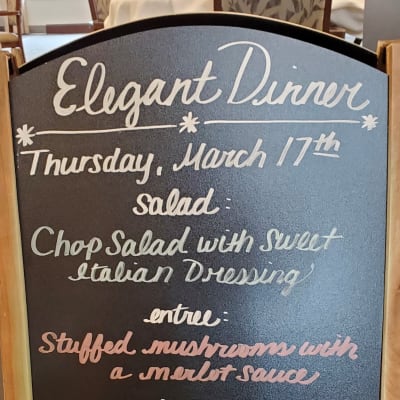 Elegant Dinner
Thursday, March 17th
salad:
Chop Salad with Sweet
Italian Dressing
entree:
Stuffed mushrooms with
a merlot sauce